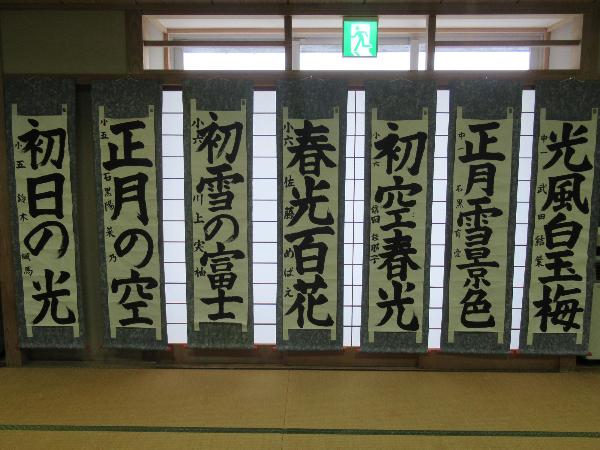 初日の光
小五
鈴木
正月の空
小五
石黒陽菜乃
初雪の富士
小六
川上実柚
春光百花
小六
佐藤めばえ
初空春光
小六
正月雪景色
中一
石黒
光風白玉梅
中一
武田結葉